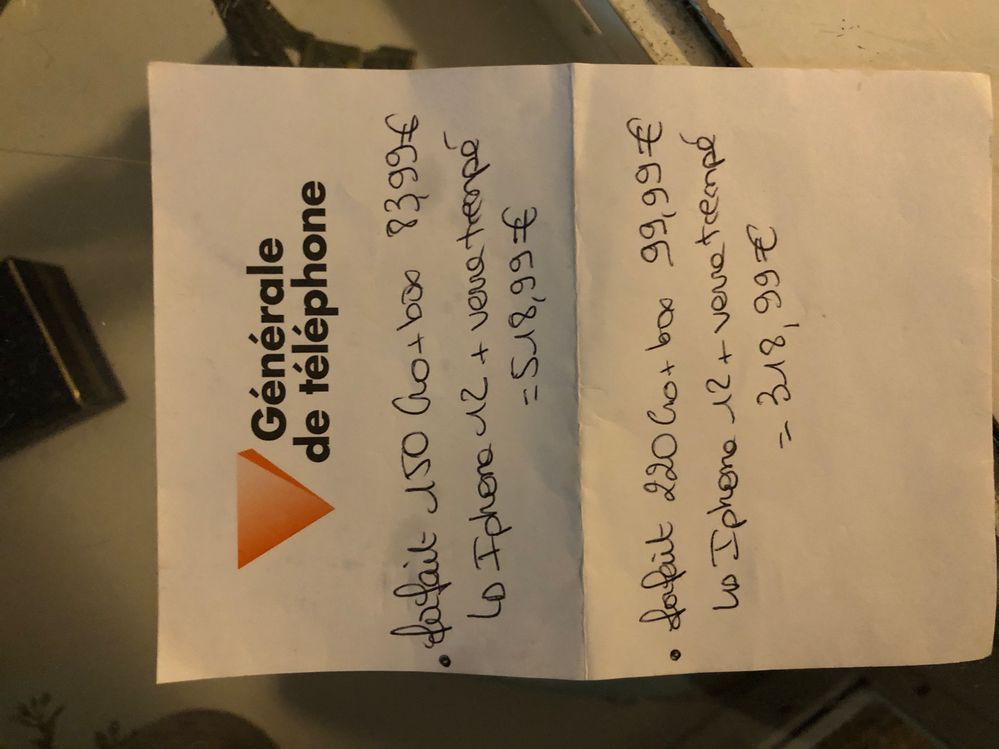 Générale
de téléphone
• forfait 150 Go + box 83,99€
↳ Iphone 12 + verre trempé
= 518,99€
• forfait 220 Go + box 99,99€
↳ Iphone 12 + verre trempé
= 318,99€